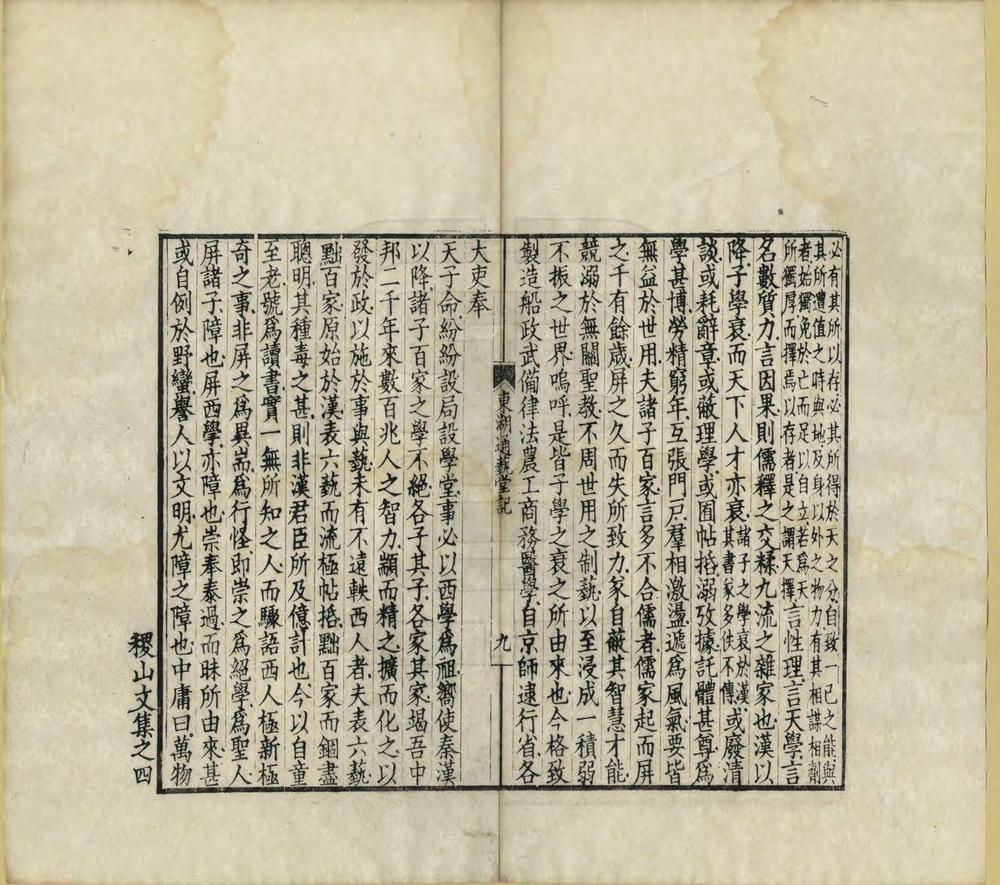 必有其所以存必其所得於天之分自致一己之能與
其所遭值之時與地及身以外之物力有其相謀相劑
者始獨免於亡而足以自立若爲天
所獨厚而擇焉以存者是之謂天擇言性理言天學言
名數質力言因果則儒釋之交糅九流之雜家也漢以
降子學衰而天下人才亦衰諸子之學衰於漢
其書家多佚不傳或廢清
談或耗辭章或蔽理學或囿帖括溺攷據託體甚尊爲
學甚博勞精窮年互張門戸羣相激盪遞爲風氣要皆
無益於世用夫諸子百家言多不合儒者儒家起而屏
之千有餘歲屏之久而失所致力家自蔽其智慧才能
競溺於無關聖教不周世用之制藝以至浸成一積弱
不振之世界嗚呼是皆子學之衰之所由來也今格致
製造船政武備律法農工商務醫學自京師逮行省各
東湖通藝堂記
九
大吏奉
天子命紛紛設局設學堂事必以西學爲祖嚮使秦漢
以降諸子百家之學不絕各子其子各家其家竭吾中
邦二千年來數百兆人之智力顓而精之擴而化之以
發於政以施於事與藝未有不遠軼西人者夫表六藝
黜百家原始於漢表六藝而流極帖括黜百家而錮盡
聰明其種毒之甚則非漢君臣所及億計也今以自童
至老號爲讀書實一無所知之人而驟語西人極新極
奇之事非屏之爲異耑爲行怪即崇之爲絕學爲聖人
屏諸子障也屏西學亦障也崇奉泰過而昧所由來甚
或自例於野蠻譽人以文明尤障之障也中庸曰萬物
稷山文集之四